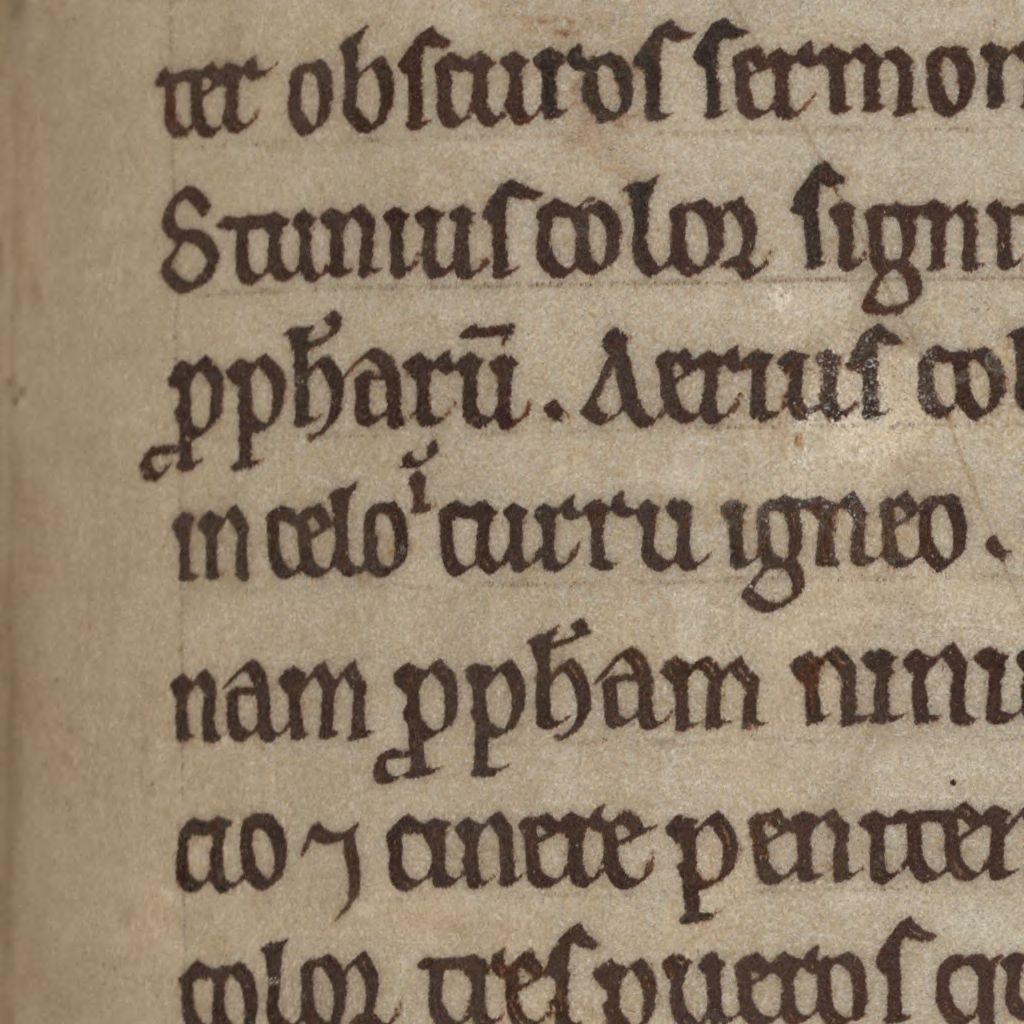 ter obscuros sermon
Stinius color signi
ꝓph̅arū. Aerius col
in celo curru igneo.
nam ꝓph̅am niniu
cio ⁊ cinere peniten
color tres pueros qu